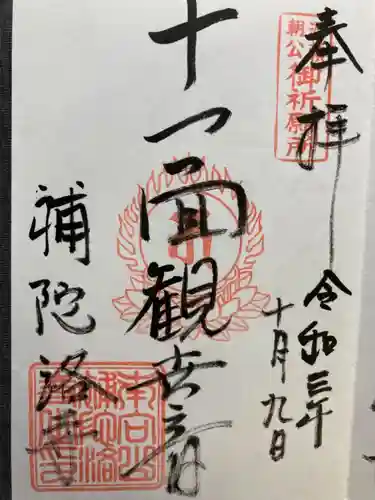 奉拝
令和三年
十月九日
朝公御祈願所
十一面観世音
補陀洛山